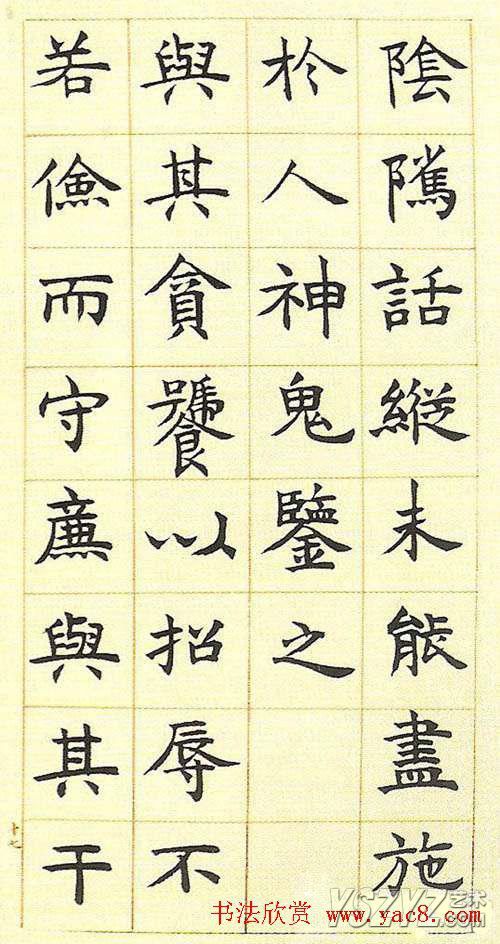 陰隲話縱未能盡施
於人神鬼鑒之
與其貪饕以招辱不
若儉而守廉與其干
十七
书法欣赏 www.yac8.com